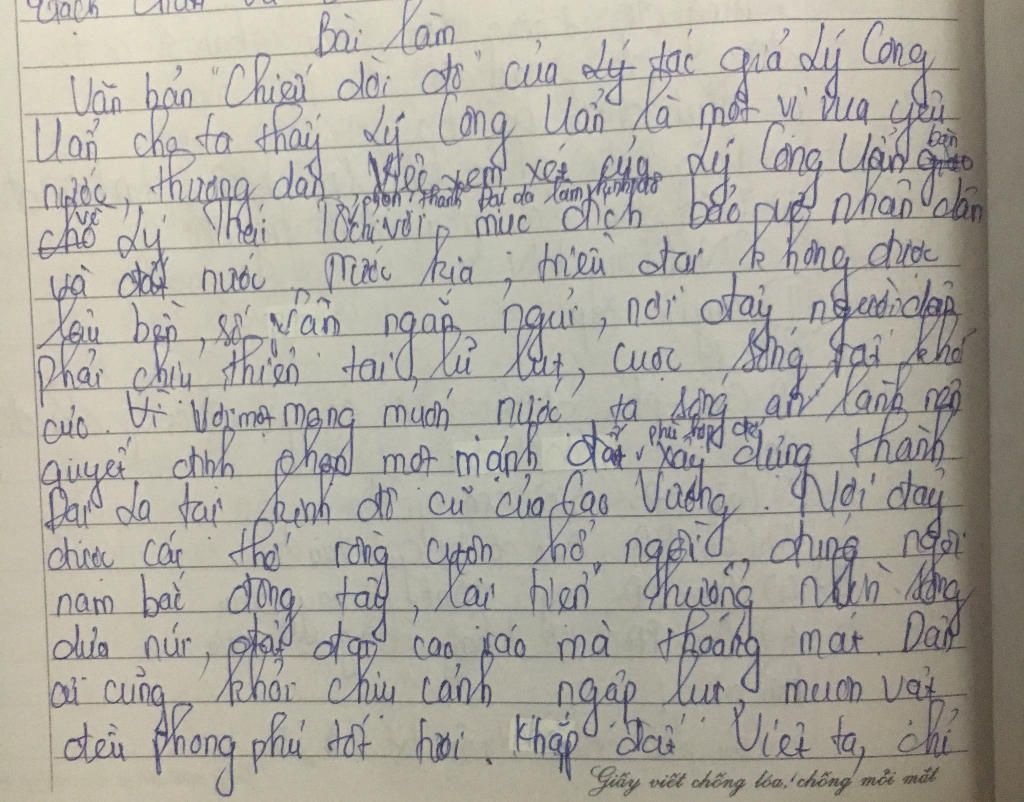 Bài làm
Văn bản "Chiếu dời đô" của Lý tác giả Lý Công
Uẩn cho ta thấy Lý Công Uẩn là một vị vua yêu
nước, thương dân. Việc xem xét của Lý Công Uẩn bàn
về chọn thành Đại La làm kinh đô
chỗ Lý Thái Tổ chỉ với mục đích bảo vệ nhân dân
và đất nước. Trước kia, triều đại không được
lâu bền, số vận ngắn ngủi, nơi đây người dân
phải chịu thiên tai, lũ lụt, cuộc sống rất khó
cức. Vì Với một mạng muốn nước ta sống an lành nên
quyết định chọn một mảnh đất phù hợp để xây dựng thành
Đại La tại kinh đô cũ của Cao Vương. Nơi đây
được các thế rồng cuộn hổ ngồi, đúng ngôi
nam bắc đông tây, lại tiện hướng nhìn sông
dựa núi, đất đai cao ráo mà thoáng mát. Dân
cư cũng khỏi chịu cảnh ngập lụt, muôn vật
đều phong phú tốt tươi. Khắp đất Việt ta, chỉ
Giấy viết chống lóa, chống mỏi mắt